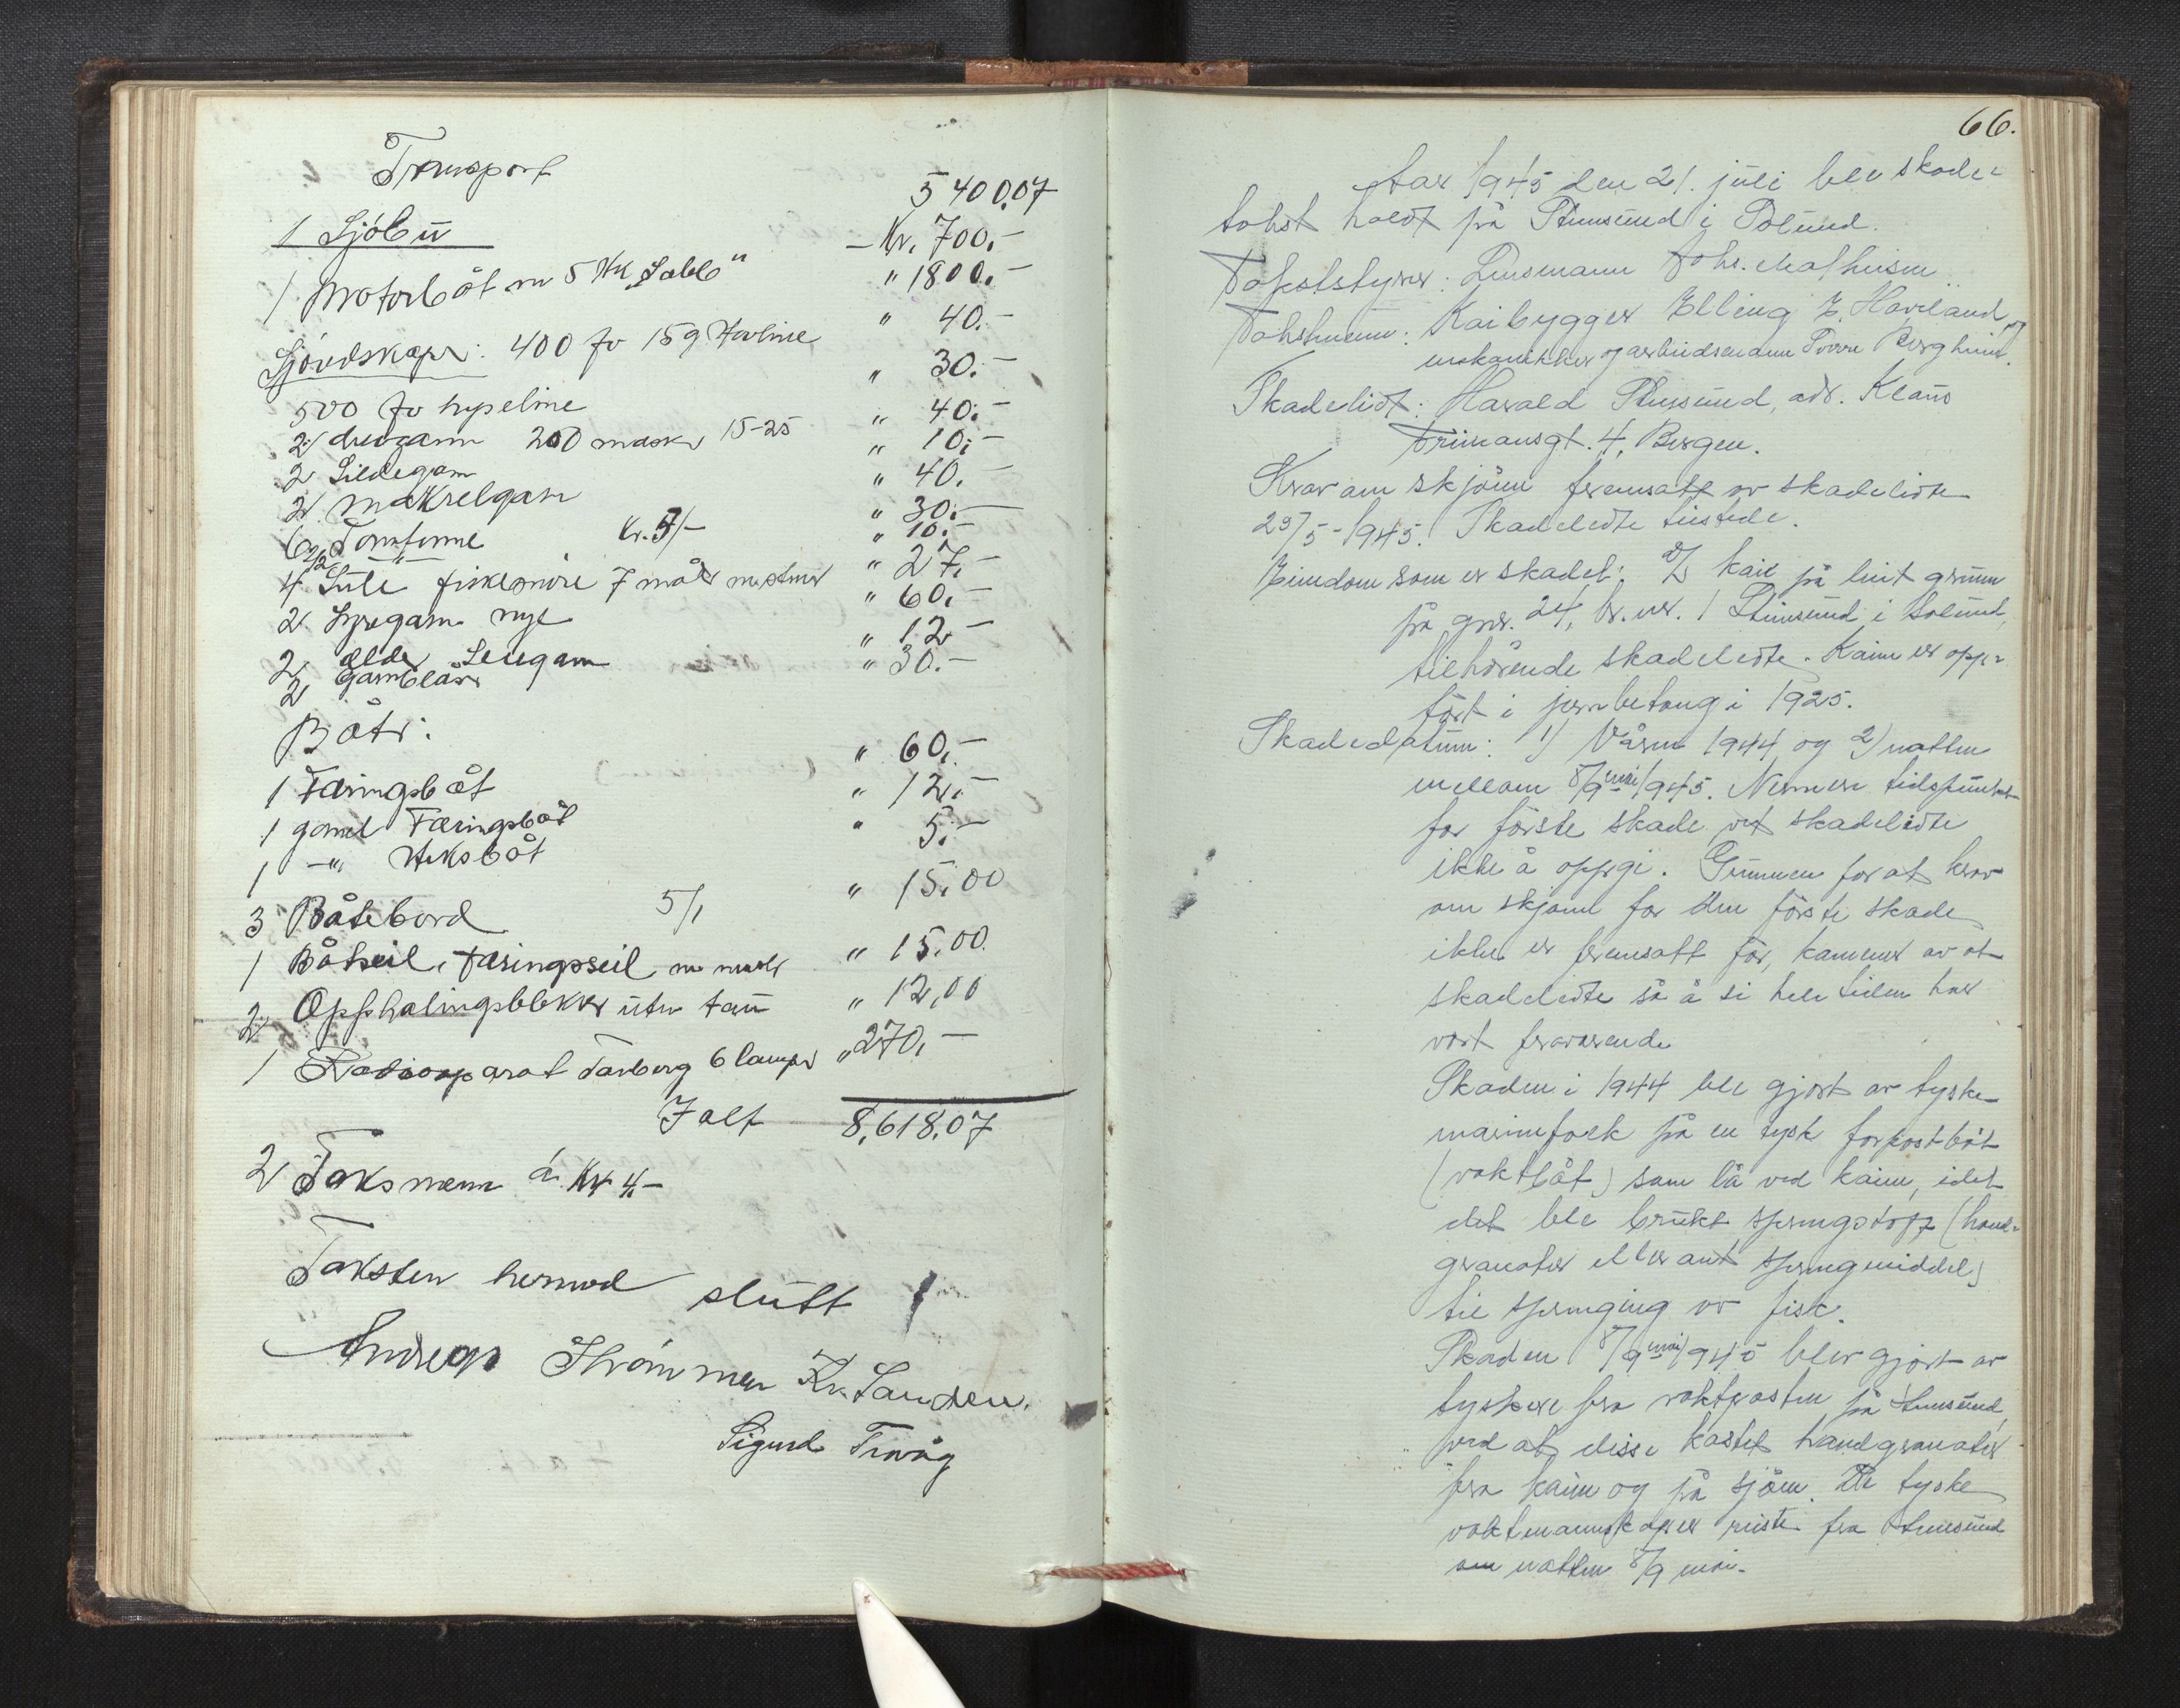 Transport 5400,07
1 Sjöbu - Kr. 700,-
1 Motorbåt m 5 Hk „Sabb" " 1800,-
Sjöredskaper: 400 fv 15 g Havline " 40,-
500 fv hyseline " 30,-
2 drivgarn 200 mask 15-25 " 40,-
2 Sildegarn " 10,-
2 Makrelgarn " 40,-
6 Kr. 5/- " 30,-
" 10,-
4 7 mål " 27,-
2 nye " 60,-
2 elder " 12,-
2 " 30,-
Båter:
1 Færingsbåt " 60,-
1 gamel Færingsbåt " 12,-
1 -"- Heksbåt " 5,-
3 Båtebord 5/, " 15,00
1 Båtseil, Færingseil m mast " 15,00
2 Opphalingsblokker uten tau " 12,00
1 Radioaparat Tanberg 6 lamper " 270,-
I alt 8,618,07
2 Taksmenn á Kr 4,-
Taksten hermed slutt
Andreas Strömmen Kr. Sanden.
Sigurd Travåg
66.
År 1945 den 21. juli blev skade-
takst holdt på Steinsund i Solund.
Takststyrer: Lensmann Johs. Mathisen
Takstmenn: Kaibygger Elling E. Haveland og
mekanikker og arbeidsmann Sverre Bergheim.
Skadelidt: Harald Steinsund, adr. Klaus
4, Bergen.
Krav om skjönn fremsatt av skadelidte
29/5-1945. Skadelidte tilstede.
Eiendom som er skadet: kai på leiet grunn
på gnr. 24, br. nr. 1 Steinsund i Solund,
tilhörende skadelidte. Kaien er opp-
fört i jernbetong i 1925.
Skadedatum: 1) Våren 1944 og 2) natten
mellom 8/9 mai 1945. Nermere tidspunkt
for förste skade vet skadelidte
ikke å oppgi. Grunnen for at krav
om skjönn for den förste skade
ikke er fremsatt för, kommer av at
skadelidte så å si hele tiden har
vært fraværende
Skaden i 1944 ble gjort av tyske
marinefolk på en tysk forpostbåt
(vaktbåt) som lå ved kaien, idet
det ble brukt sprengstoff (hand-
granater eller ant sprengmiddel)
til sprenging av fisk.
Skaden 8/9 mai 1945 blev gjort av
tyskere fra vaktposten på Steinsund,
ved at disse kastet handgranater
fra kaien og på sjöen. De tyske
vaktmannskaper reiste fra Steinsund
om natten 8/9 mai.